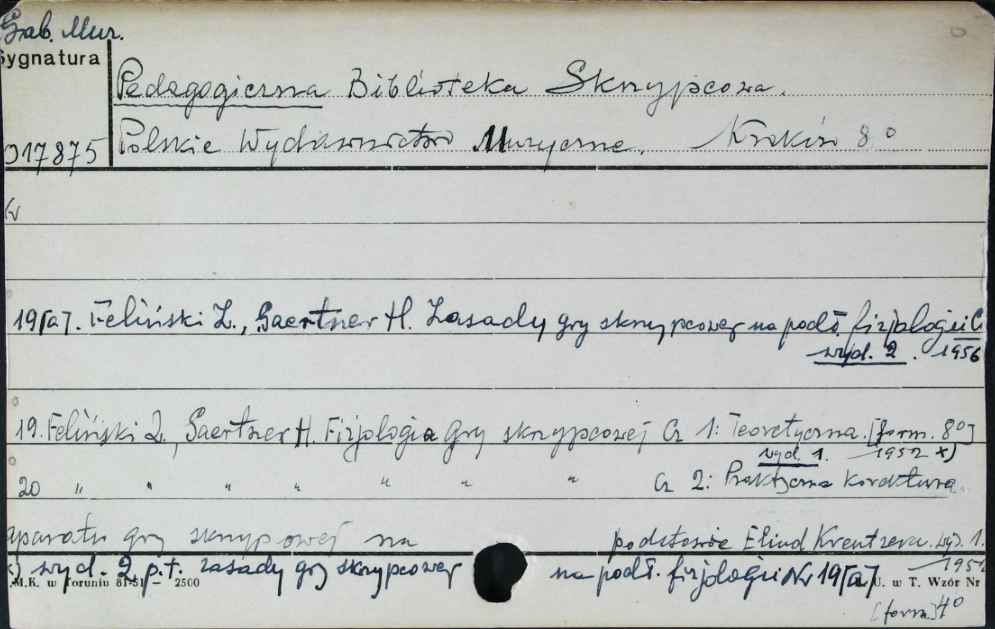 Gab. Muz.
Sygnatura
017875
Pedagogiczna Biblioteka Skrzypcowa.
Polskie Wydawnictwo Muzyczne. Kraków 8°
19[a]. Feliński Z., Gaertner H. Zasady gry skrzypcowej na podł. fizjologii C
wyd. 2. 1956
19. Feliński Z., Gaertner H. Fizjologia Gry skrzypcowej Cz 1: Teoretyczna. [form. 8°]
wyd. 1. 1952 x)
20 " " " " " " " Cz 2: Praktyczna Korektura
aparatu gry skrzypcowej na podstawie Etiud Kreutzera. wyd. 1.
1952
x) wyd. 2 p.t. zasady gry skrzypcowej na podł. fizjologii Nr 19[a]
.M.K. w Toruniu 81-51 — 2500
U. w T. Wzór Nr
[form] 4°